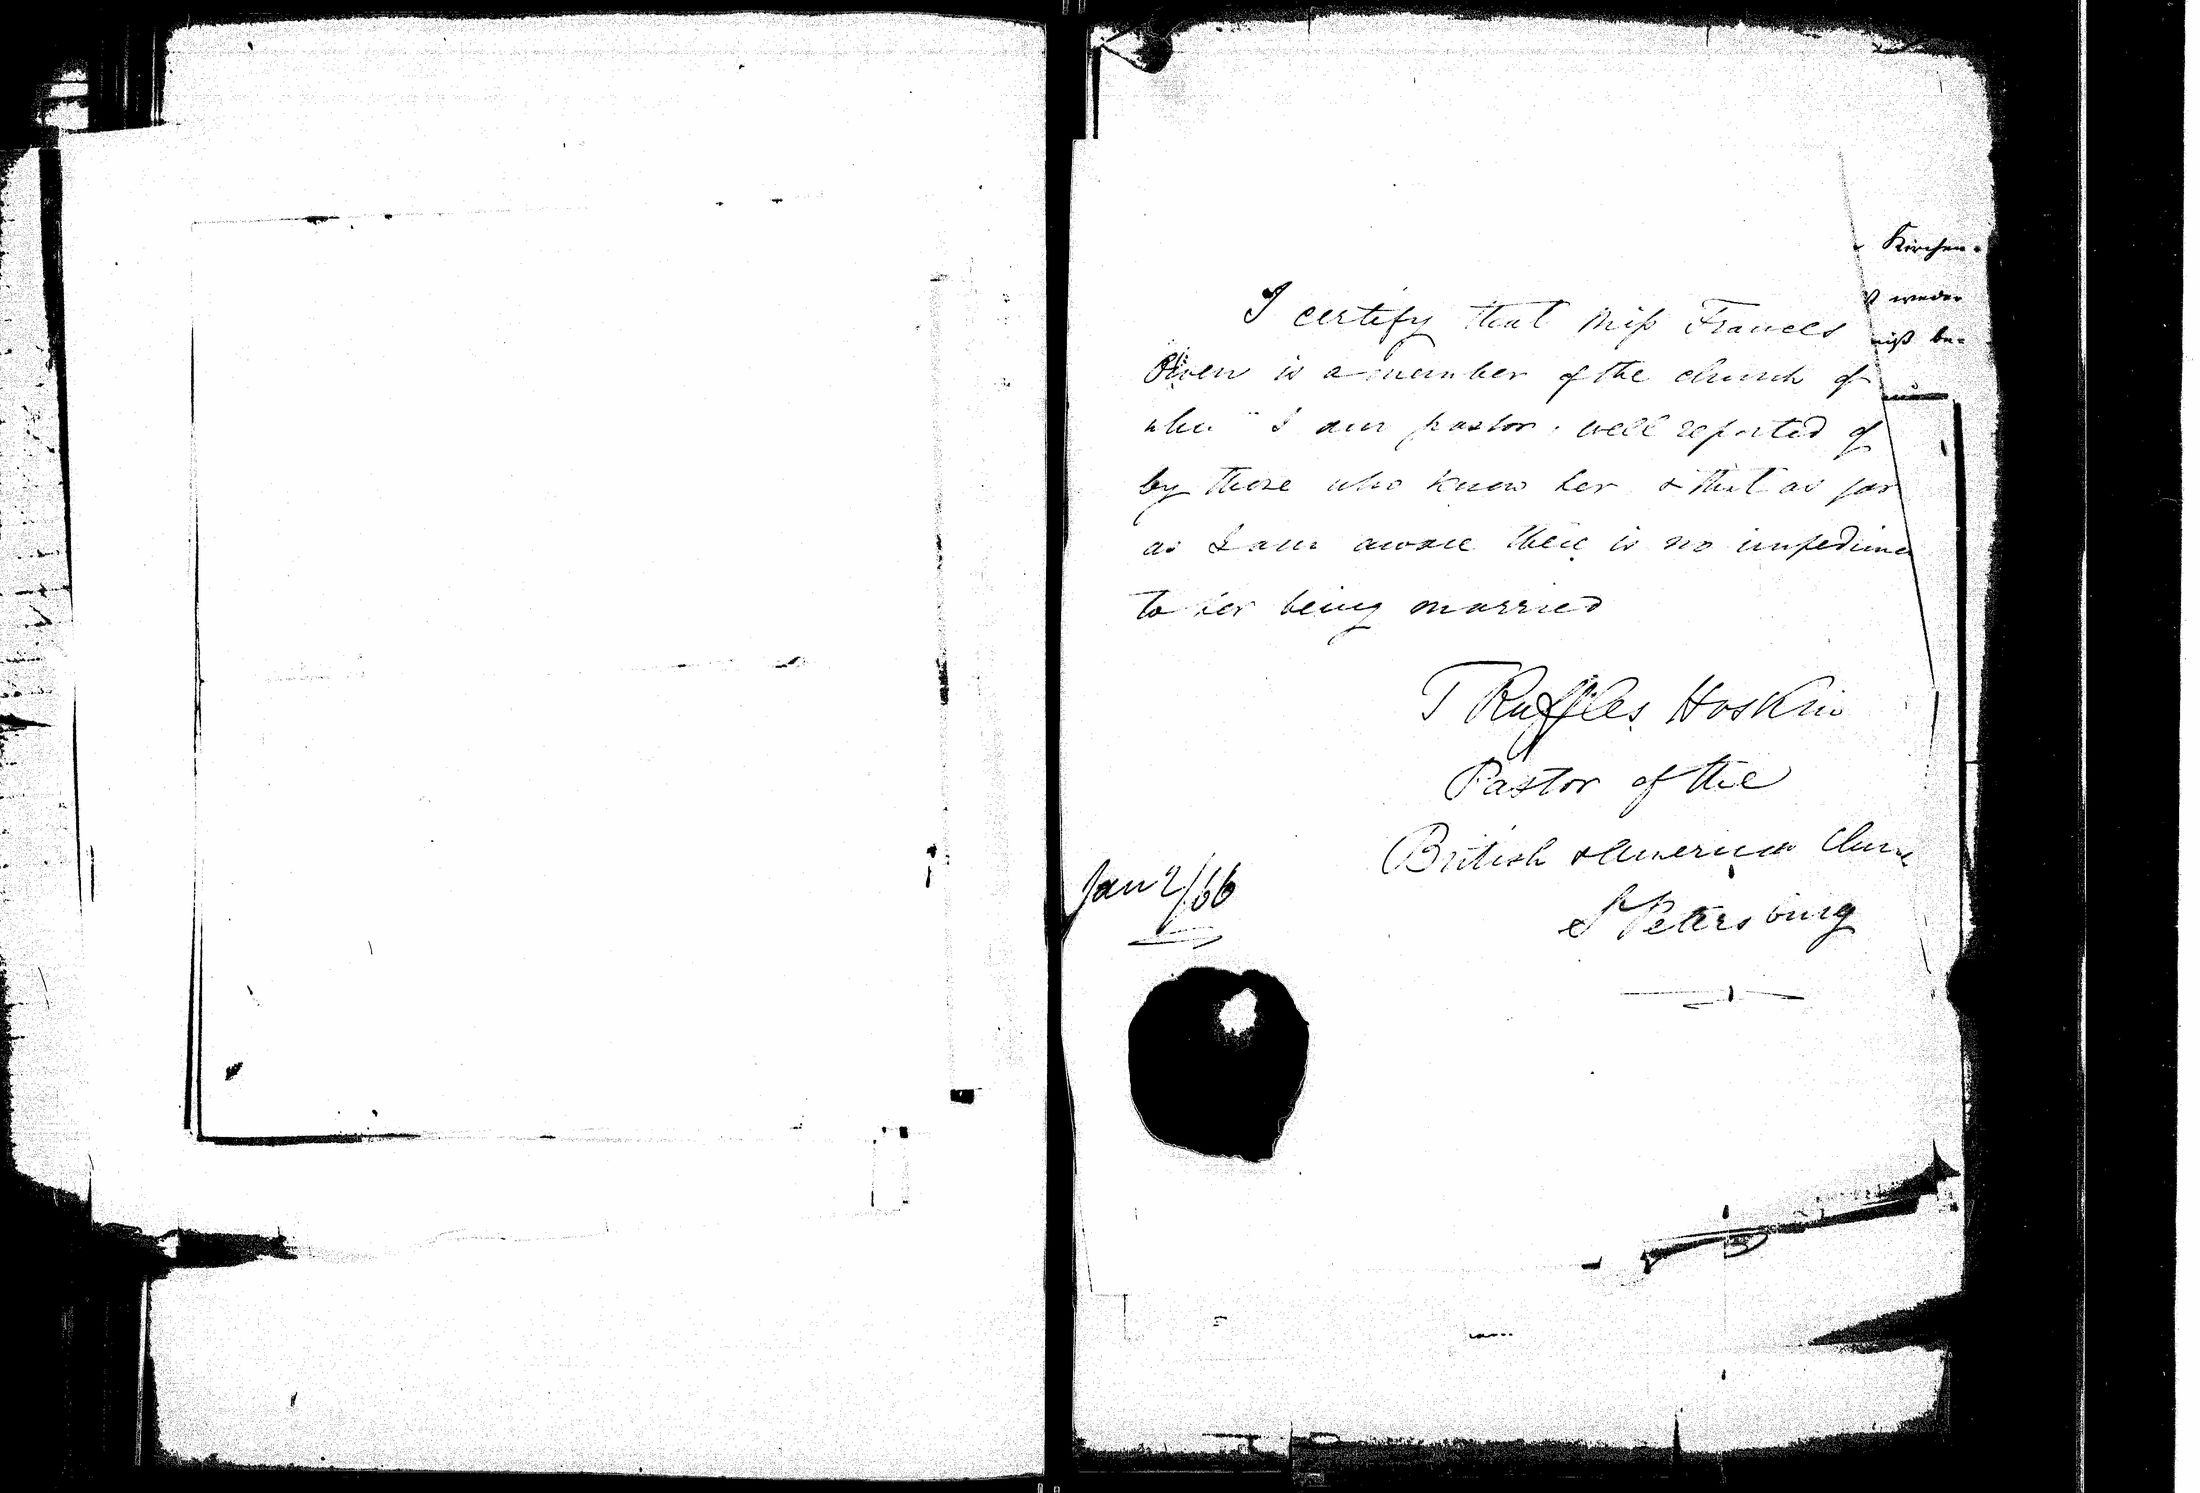 I certify that Miss Frances
Owen is a member of the church of
I am pastor, well reported of
by those who know her & that as far
as I am aware there is no impedime
to her being married
T Raffles Hoskin
Pastor of the
British & American Churc
St Petersburg
Jan 2/66
Kirchen-
weder
niß be-